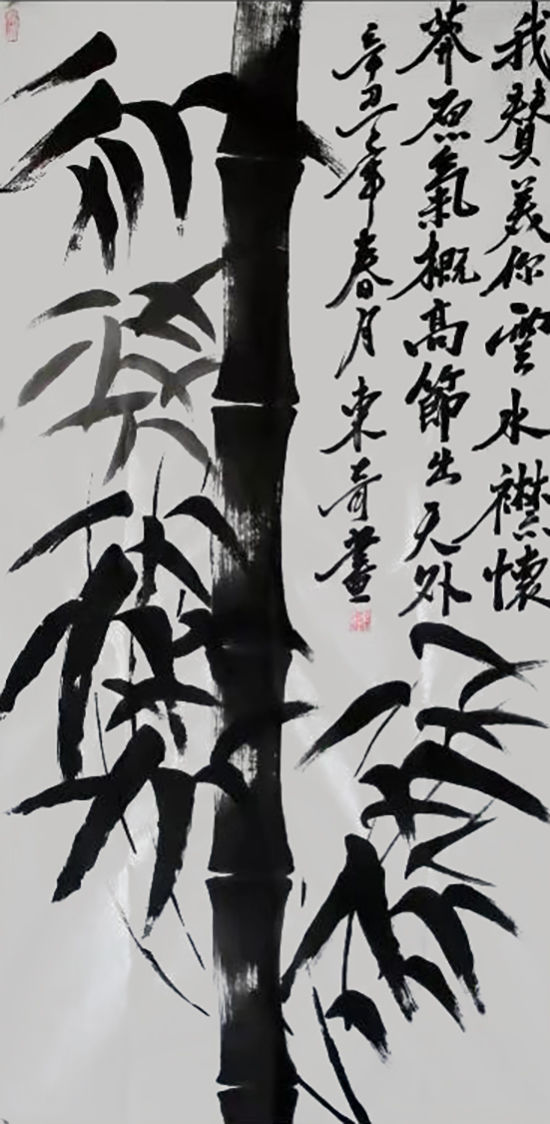 我贊美你雲水襟懷
莽原氣概高節出天外
辛丑之年春月東奇畫